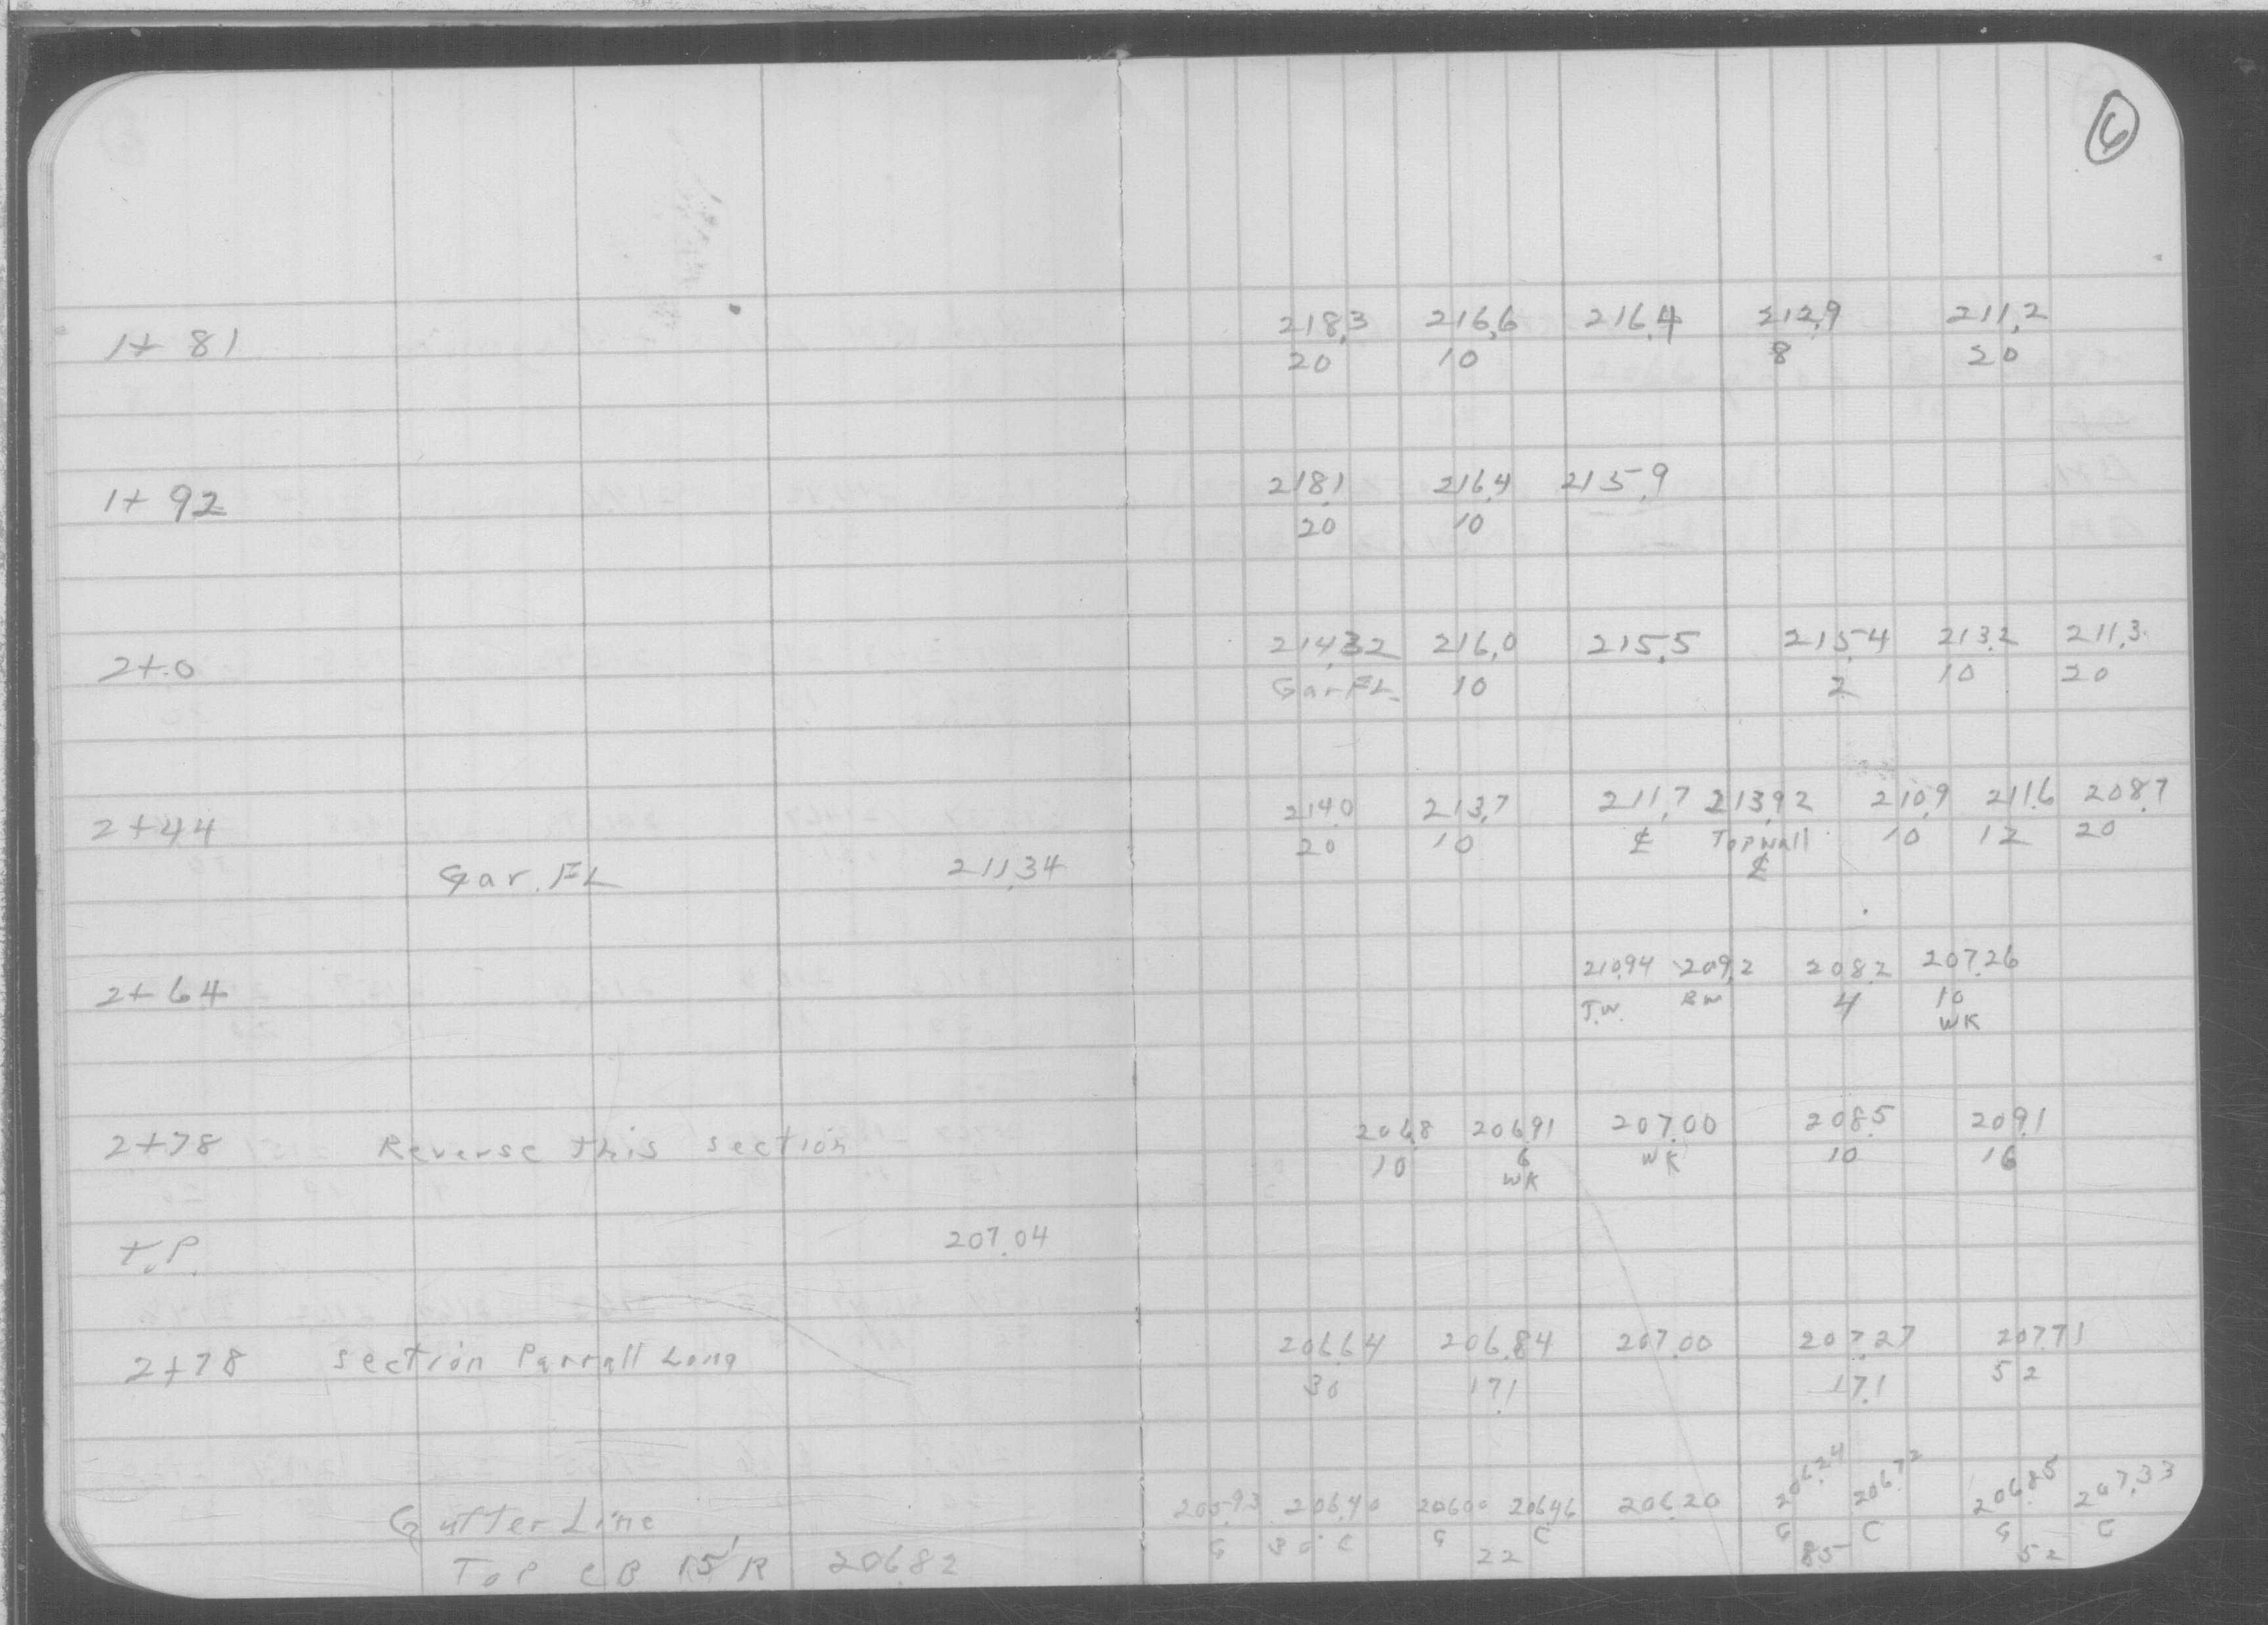 6
1+81 218.3 216.6 216.4 212.9 211.2
20 10 8 20
1+92 218.1 216.4 215.9
20 10
2+0 214.32 216.0 215.5 215.4 213.2 211.3
Gar FL 10 2 10 20
2+44 214.0 213.7 211.7 213.92 210.9 211.6 208.7
20 10 ℄ Top wall 10 12 20
℄
Gar. FL 211.34
2+64 210.94 209.2 208.2 207.26
T.W. BW 4 10
WK
2+78 Reverse this section 206.8 206.91 207.00 208.5 209.1
10 6 WK 10 16
WK
T.P. 207.04
2+78 section Parrall Long 206.64 206.84 207.00 207.27 207.71
30 17.1 17.1 52
Gutter Line 205.93 206.40 206.00 206.46 206.20 206.24 206.72 206.85 207.33
G 30 C G C G C G C
22 85 52
Top CB 15'R 206.82